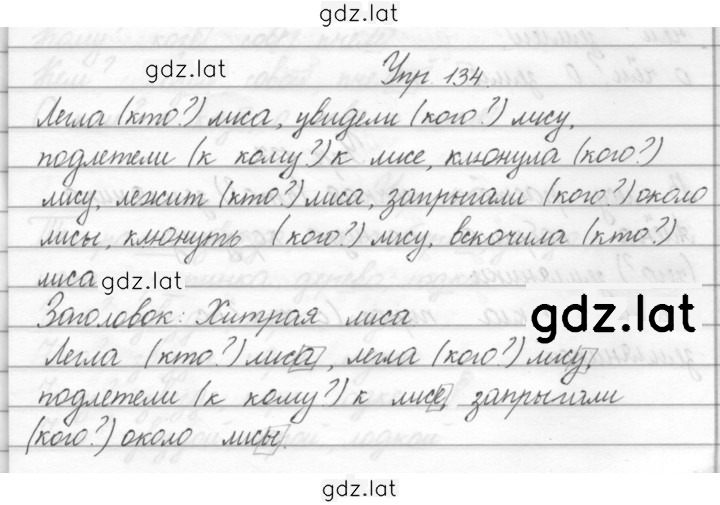 gdz.lat
gdz.lat
Упр. 134.
Легла (кто?) лиса, увидели (кого?) лису,
подлетели (к кому?) к лисе, клюнула (кого?)
лису, лежит (кто?) лиса, запрыгали (кого?) около
лисы, клюнуть (кого?) лису, вскочила (кто?)
лиса
gdz.lat
gdz.lat
Заголовок: Хитрая лиса
Легла (кто?) лиса, легла (кого?) лису,
подлетели (к кому?) к лисе, запрыгали
(кого?) около лисы.
gdz.lat